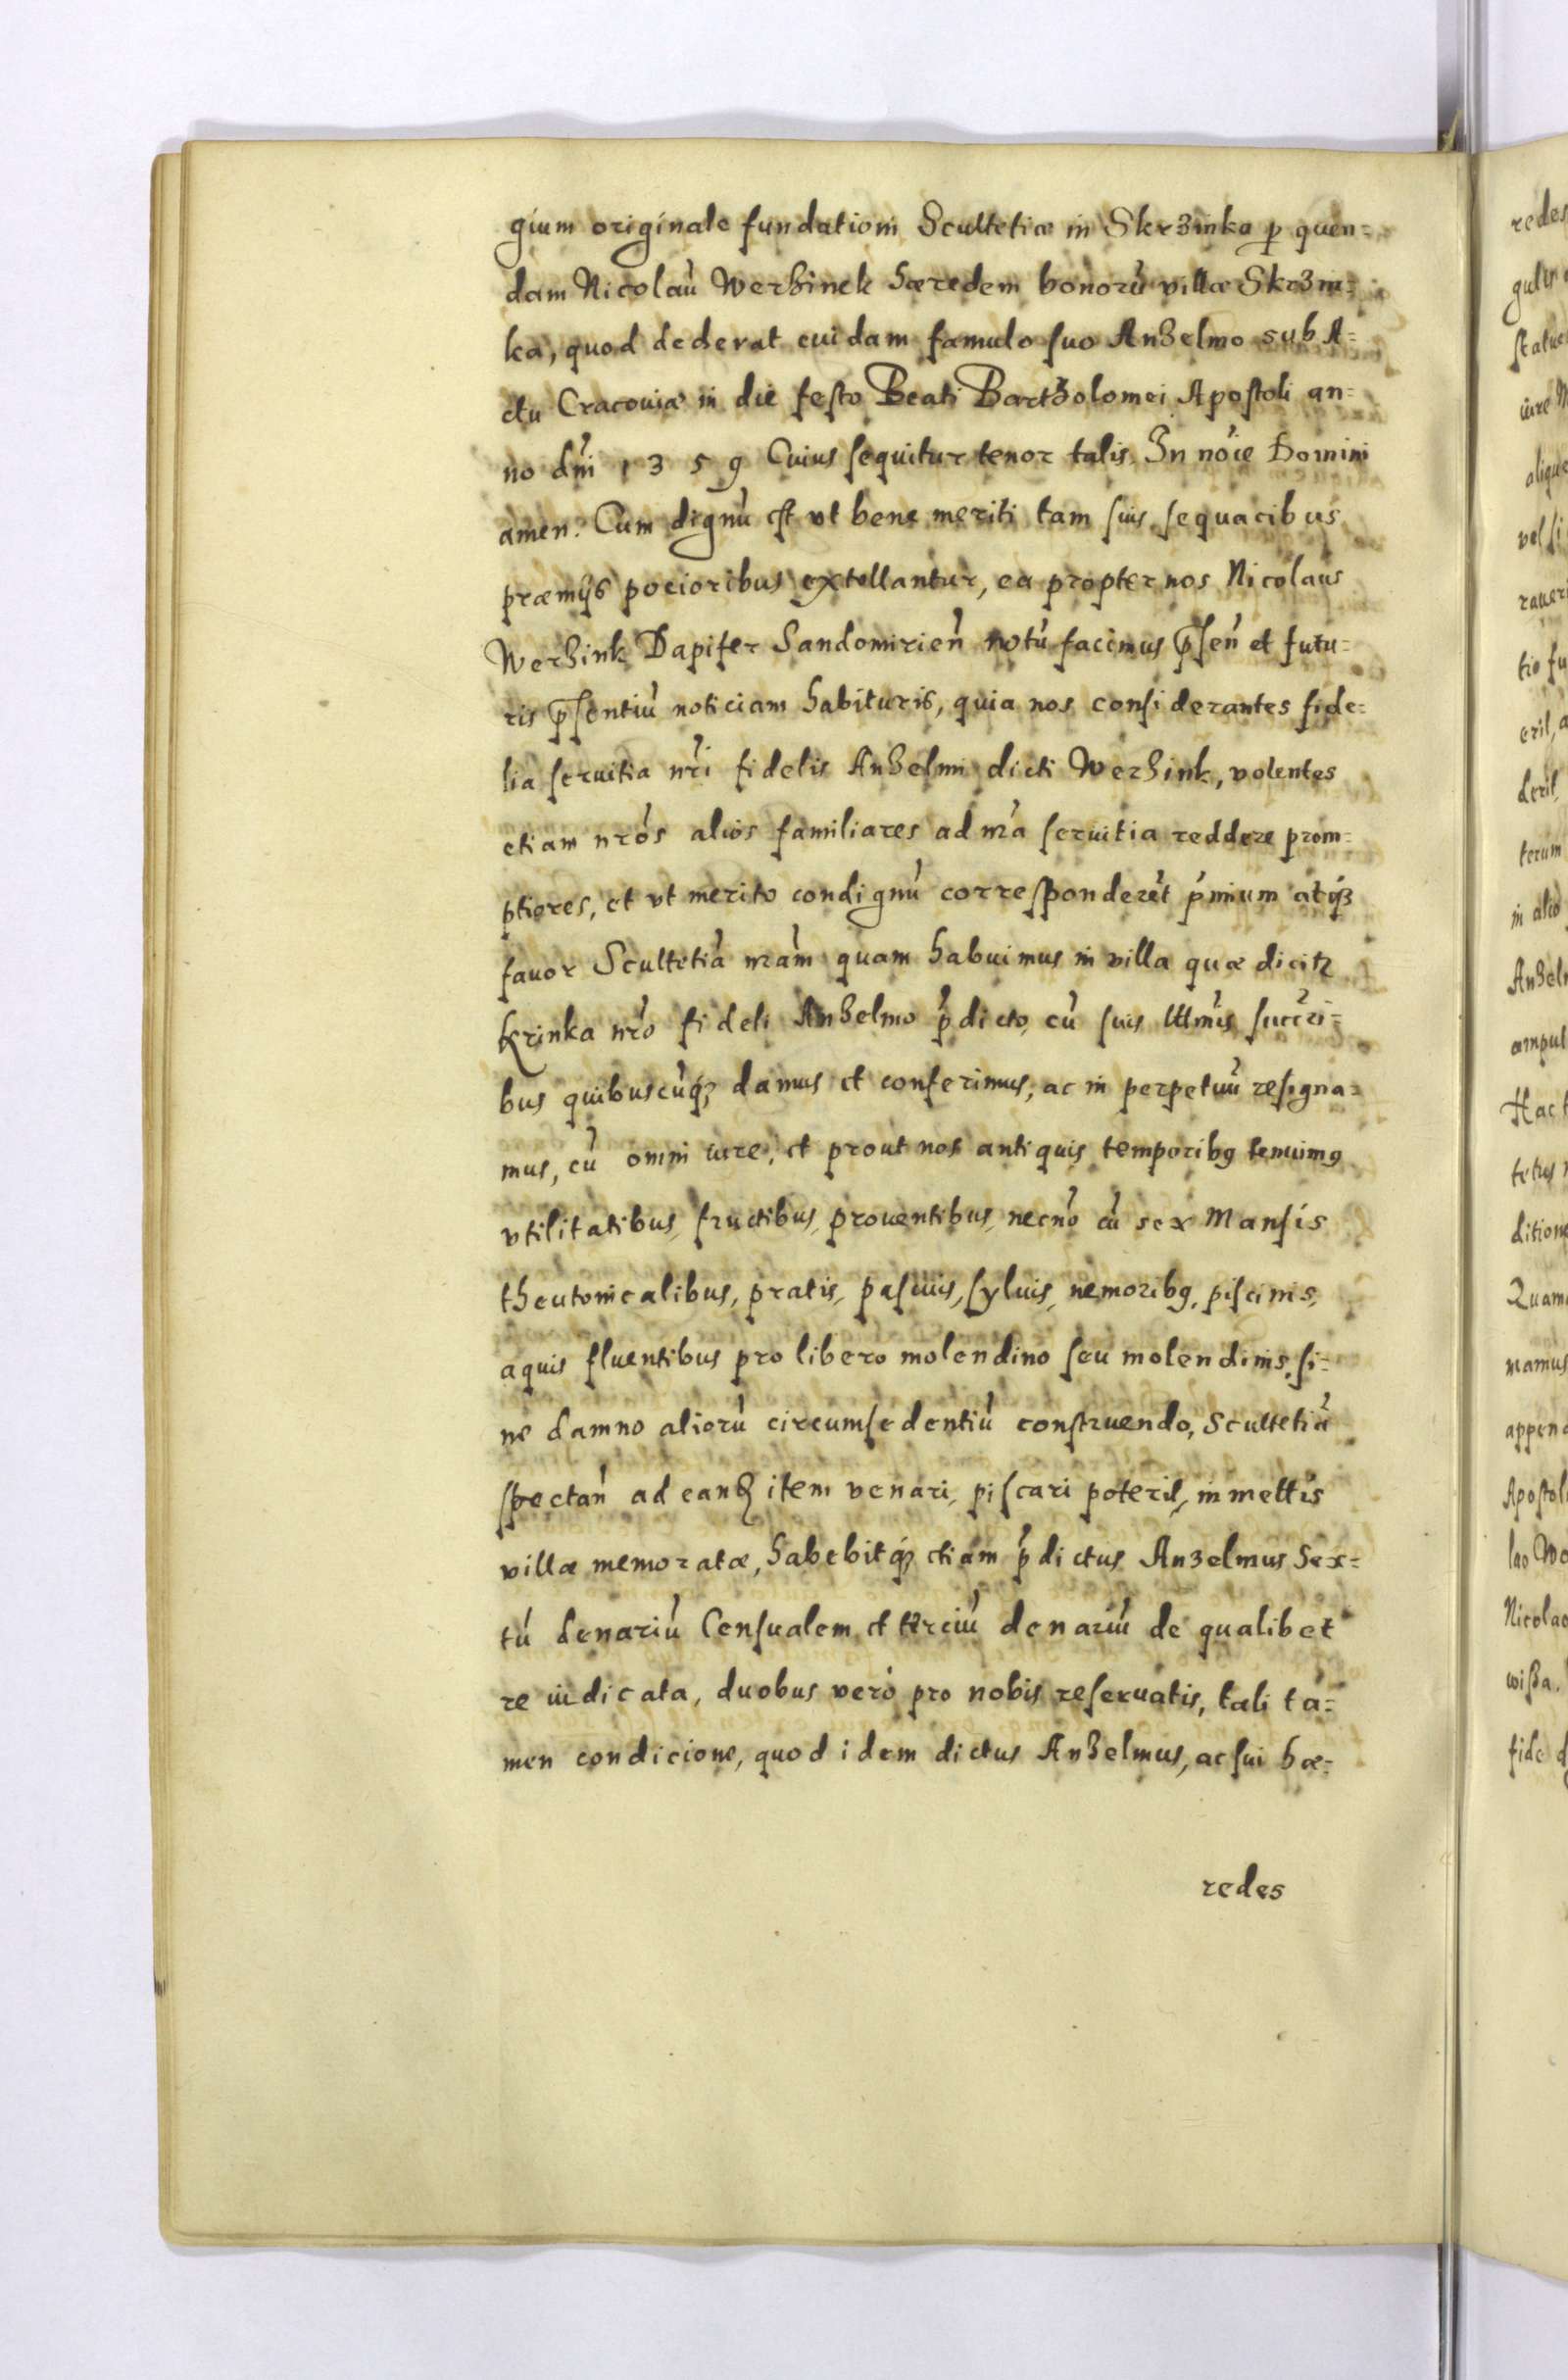 gium originale fundationi Scultetiæ in Skrzinka ꝑ quen=
dam Nicolaũ Werhinek hæredem bonorũ villæ Skrzin=
ka, quod dederat cuidam famulo suo Anzelmo sub A=
ctu Cracoviæ in die festo Beati Bartholomei Apostoli an=
no dñi 1359 Cuius sequitur tenor talis. In nõie Domini
amen. Cum dignũ est vt bene meriti tam suis sequacibus
præmijs pocioribus extollantur, ea propter nos Nicolaus
Werhink Dapifer Sandomirieñ notũ facimus p̃señ et futu=
ris p̃sentiũ noticiam habituris, quia nos considerantes fide=
lia servitia nr̃i fidelis Anzelmi dicti Werhink, volentes
etiam nr̃os alios familiares ad nr̃a servitia reddere prom=
ptiores, et vt merito condignũ corresponderẽt p̃mium atqꝫ
favor Scultetiã nr̃am quam habuimus in villa quæ dicitꝛ
krinka nr̃o fideli Anzelmo p̃dicto, cũ suis succri=
bus quibuscũqꝫ damus et conferimus, ac in perpetuũ resigna=
mus, cũ omni iure, et prout nos antiquis temporibꝰ tenuimꝰ
vtilitatibus, fructibus, proventibus, necnõ cũ sex Mansis
theutonicalibus, pratis, pascuis, sylvis, nemoribꝰ, piscinis,
aquis fluentibus pro libero molendino seu molendinis, si=
ne damno aliorũ circumsedentiũ construendo, Scultetiã
spectañ ad eand item venari, piscari poterit, in mettis
villæ memoratæ, habebitqꝫ etiam p̃dictus Anzelmus Sex=
tũ denariũ Censualem et terciũ denariũ de qualibet
re iudicata, duobus verò pro nobis reservatis, tali ta=
men condicione, quod idem dictus Anzelmus, ac sui hæ=
redes